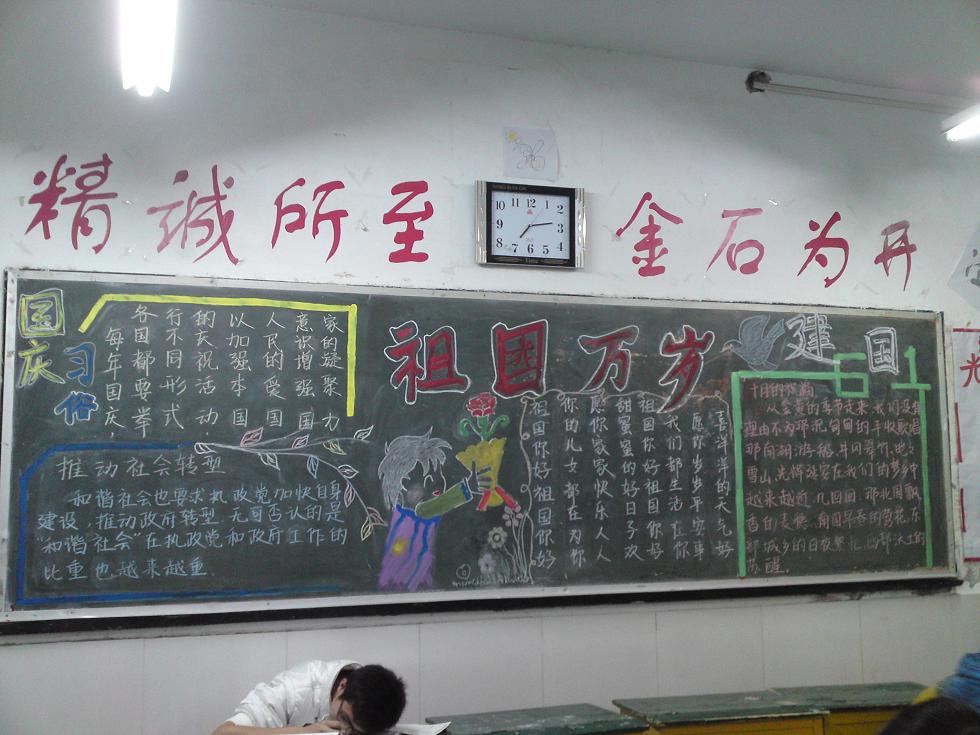 精诚所至 金石为开
10 11 12 1 2
9 3
8 7 6 5 4
国庆习俗
每年国庆,
各国都要举
行不同形式
的庆祝活动
以加强本国
人民的爱国
意识增强国
家的凝聚力
推动社会转型
和谐社会也要求执政党加快自身
建设,推动政府转型,无可否认的是
“和谐社会”在执政党和政府工作的
比重也越来越重.
祖国万岁
祖国你好祖国你好
你的儿女都在为你
愿你家家快乐人人
甜蜜蜜的好日子欢
祖国你好祖国你好
我们都生活在你
愿你岁岁平安事
喜洋洋的天气好
建国
61
十月的祝福
从金黄的季节走来,我们没有
理由不为那沉甸甸的丰收歌唱
那南湖游船,井冈翠竹,皑皑
雪山,延安在我们的梦乡中
越来越近,几回回,那北国飘
香的麦穗,南国早春的花,东
部城乡的日夜繁忙,西部沃土的
苏醒.